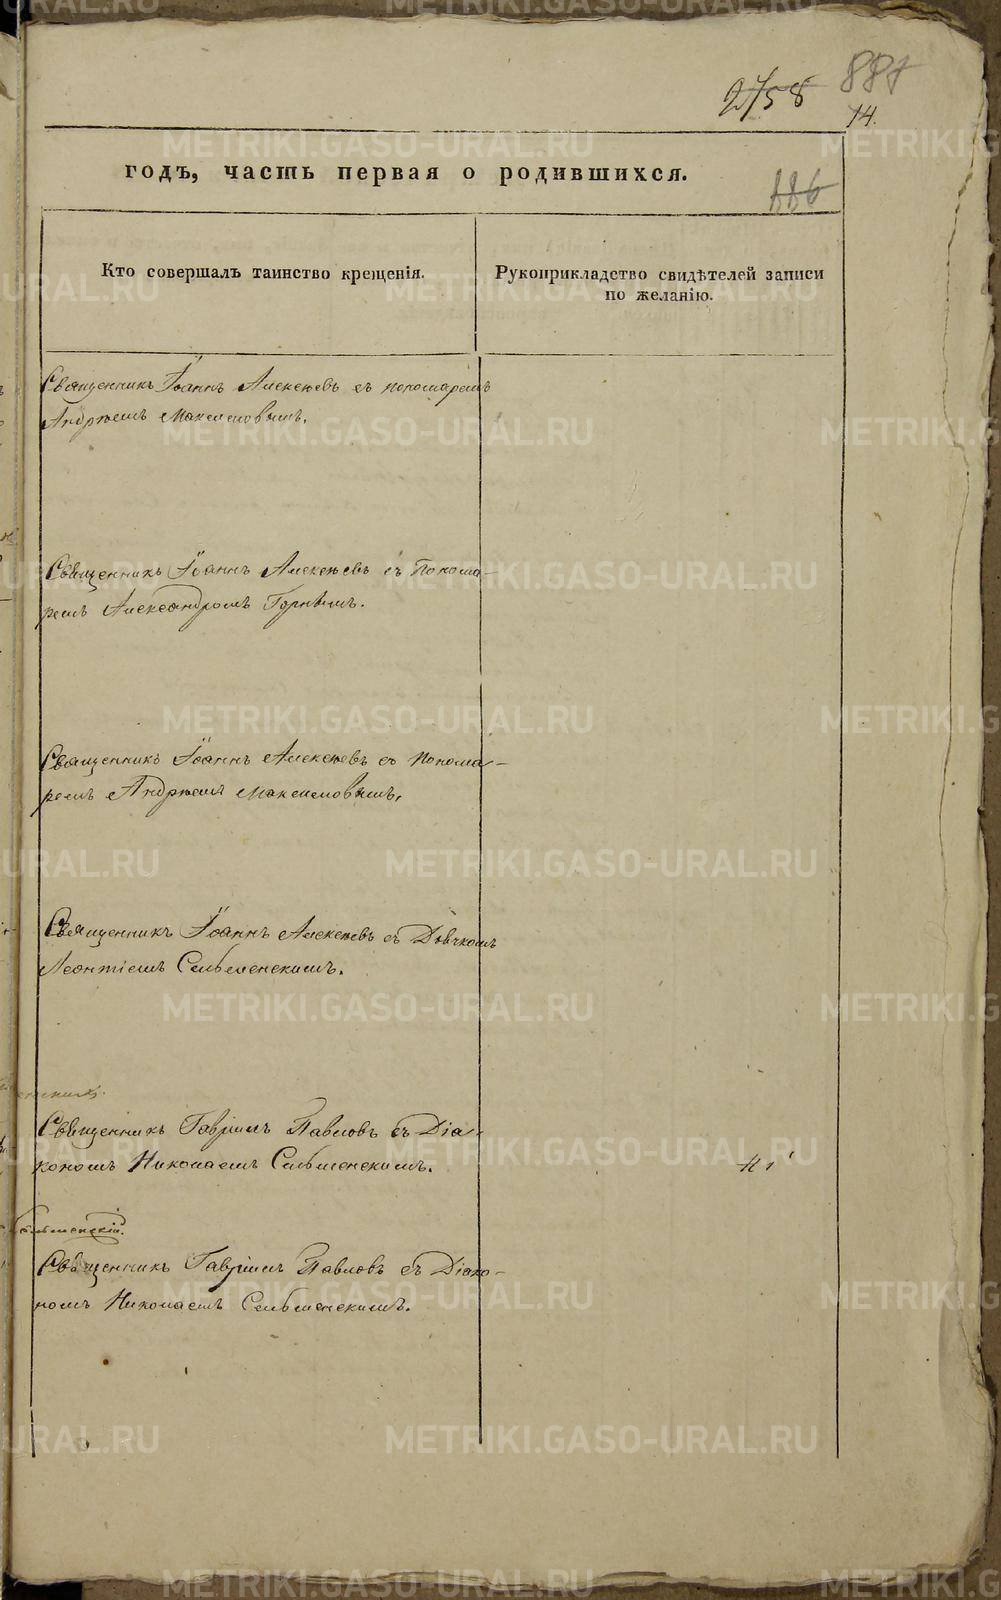 2758
887
14.
годъ, часть первая о родившихся.
886
Кто совершалъ таинство крещенія.
Рукоприкладство свидѣтелей записи
по желанію.
Священникъ Іоаннъ Алексѣевъ съ пономаремъ
Андрѣемъ Максимовымъ.
Священникъ Іоаннъ Алексѣевъ съ Понома-
ремъ Александромъ Горнымъ.
Священникъ Іоаннъ Алексѣевъ съ Понома-
ремъ Андрѣемъ Максимовымъ.
Священникъ Іоаннъ Алексѣевъ съ Дьячкомъ
Леонтіемъ Сельменскимъ.
Священникъ Гавріилъ Павловъ съ Діа-
кономъ Николаемъ Сельменскимъ.
Священникъ Гавріилъ Павловъ съ Діако-
номъ Николаемъ Сельменскимъ.
METRIKI.GASO-URAL.RU